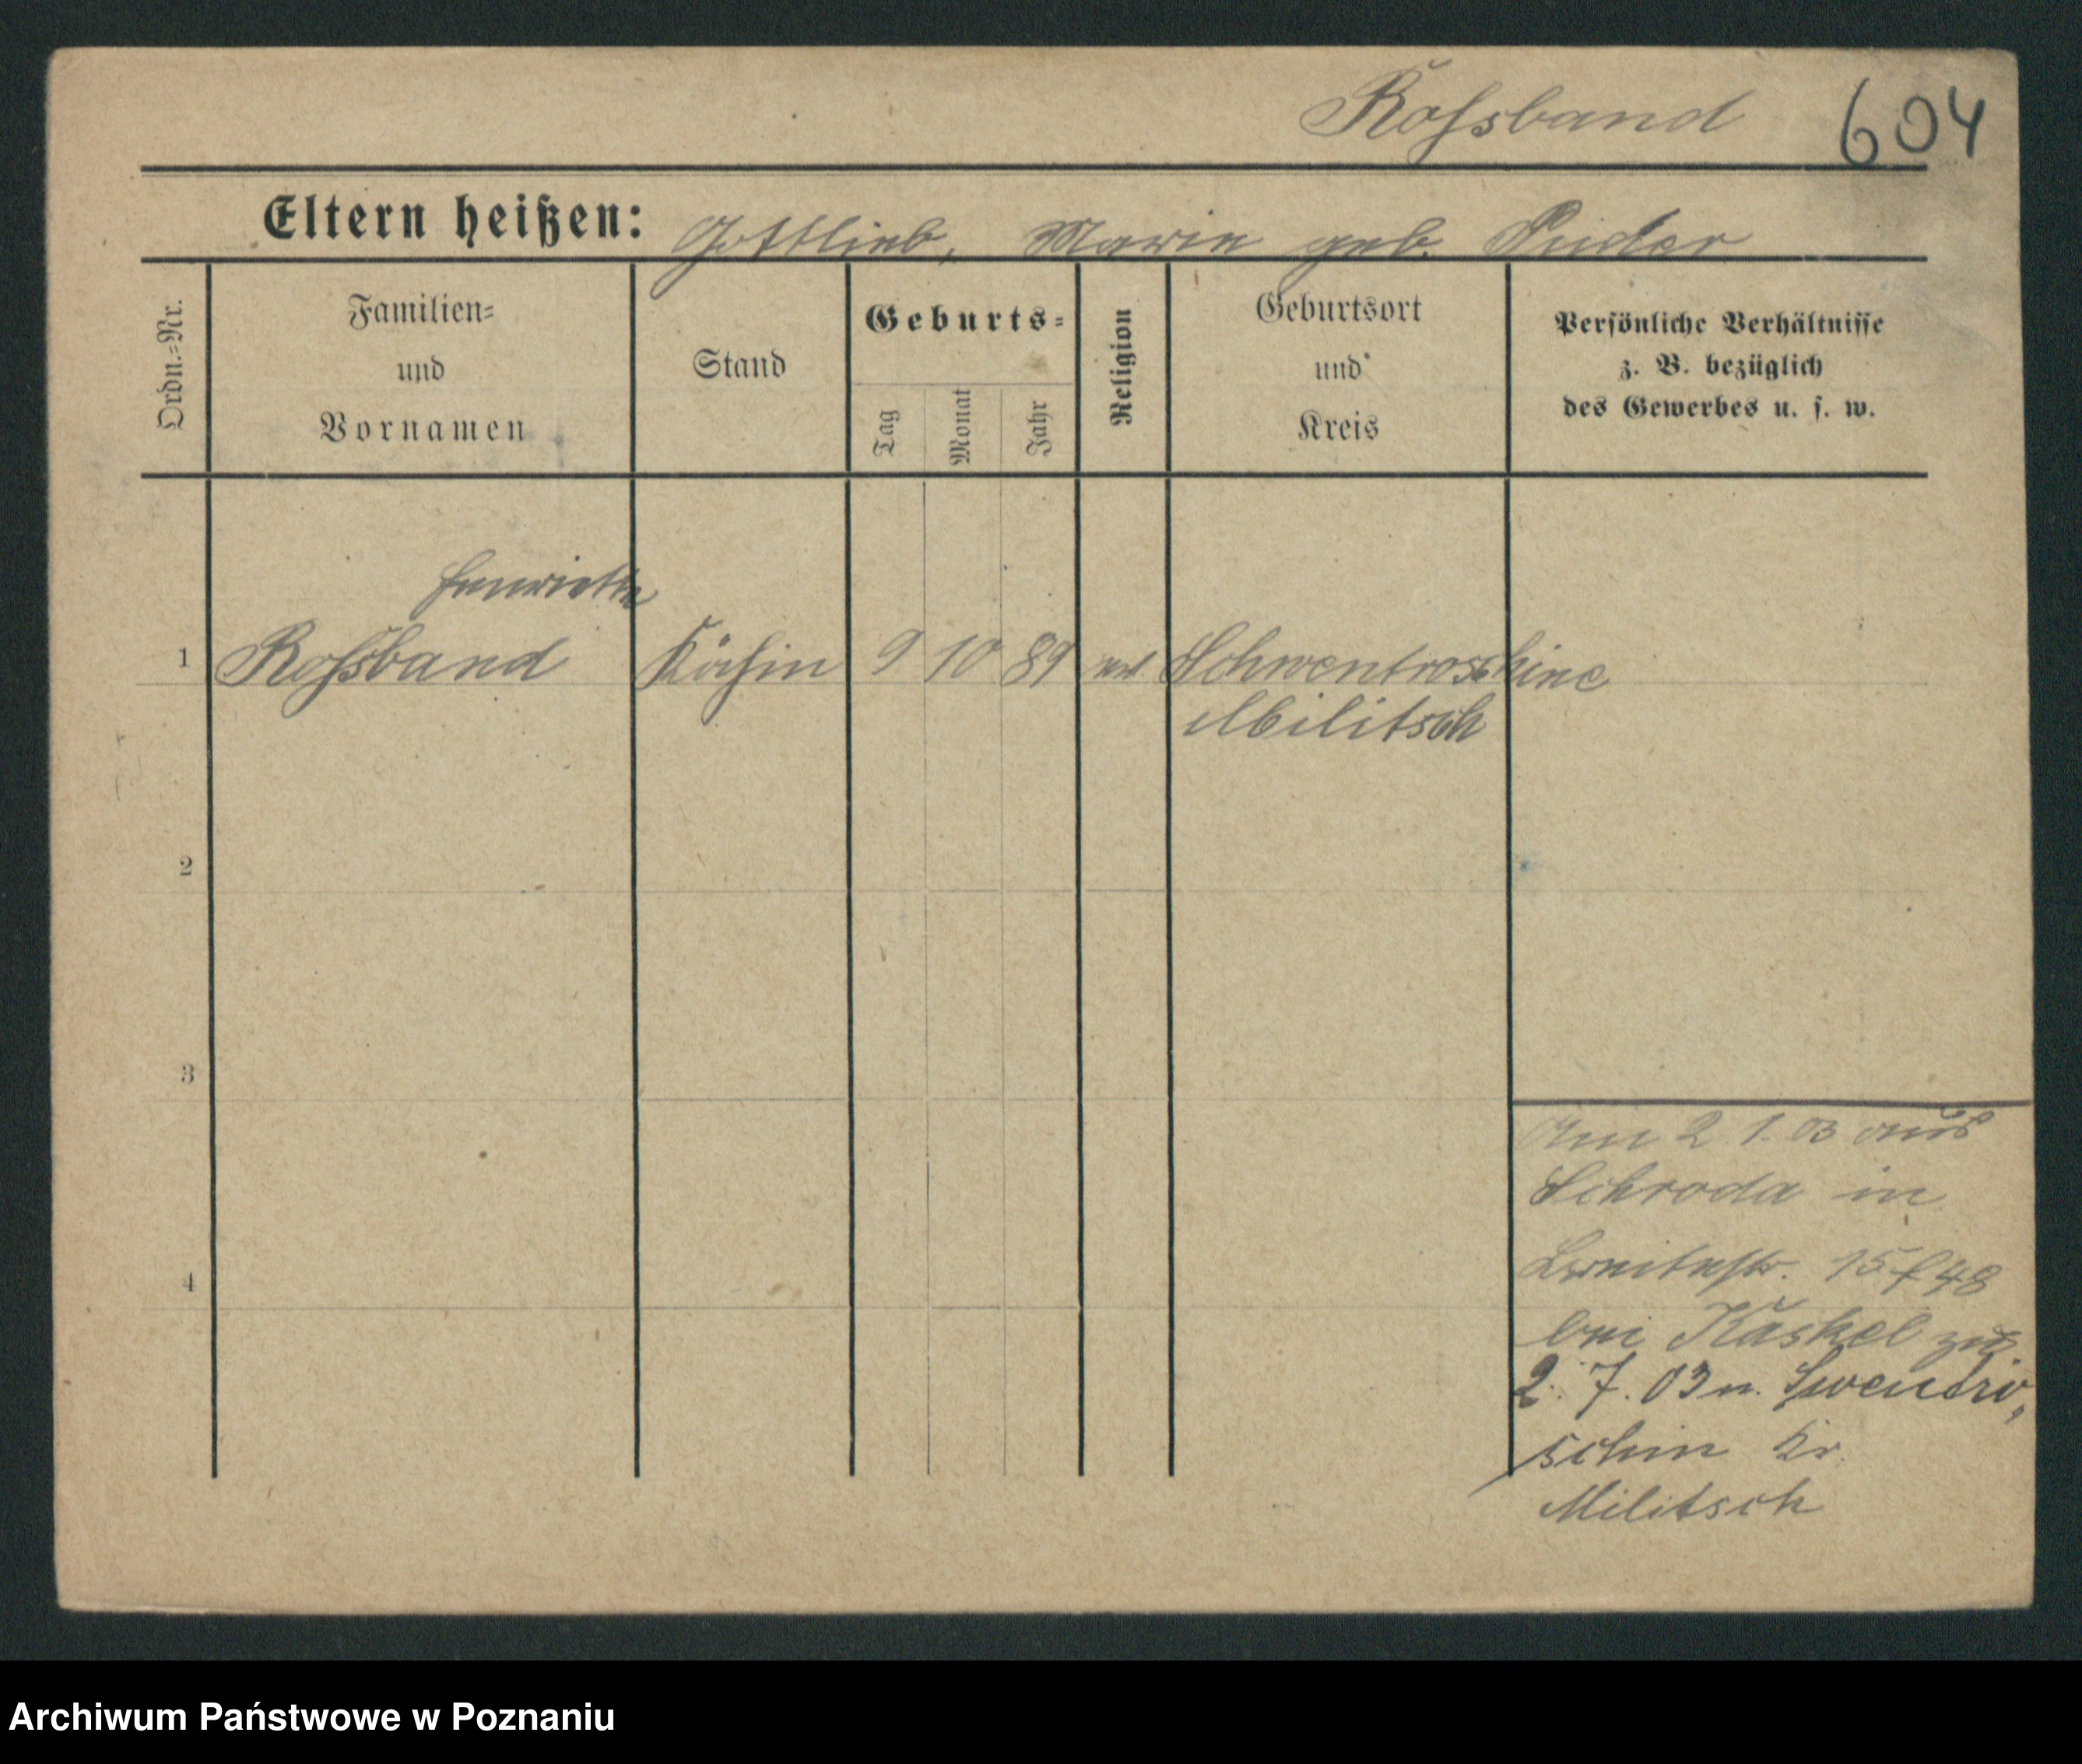 Roſsband 604
Eltern heißen: Gottlieb, Marie geb. Puder
Ordn.=Nr.
Familien=
und
Vornamen
Stand
Geburts=
Tag
Monat
Jahr
Religion
Geburtsort
und
Kreis
Persönliche Verhältnisse
z. B. bezüglich
des Gewerbes u. s. w.
Henriette
1 Roſsband Köchin 9 10 89 Schwentroschine
Militsch
2
3
4
Am 2 1. 03 aus
Schroda in
Breitestr. 15
bei Kaskel
2. 7. 03 n. Swendro„
schin Kr.
Militsch
Archiwum Państwowe w Poznaniu